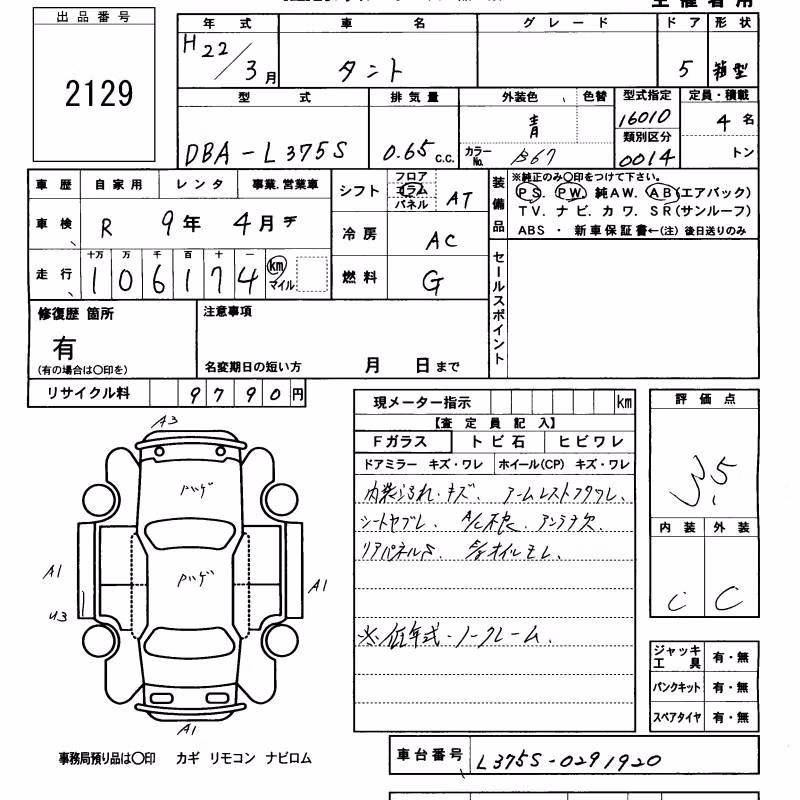 出品番号
2129
年式 車名 グレード ドア 形状
H22/3月 タント 5 箱型
型式 排気量 外装色 色替 型式指定 定員・積載
DBA-L375S 0.65 c.c. 青 16010 4名
カラーNo. B67 類別区分 0014 トン
車歴 自家用 レンタ 事業.営業車
車検 R 9年 4月
走行 十万 万 千 百 十 一
106174 km マイル
シフト フロア コラム パネル AT
冷房 AC
燃料 G
装備品
※純正のみ〇印をつけて下さい。
PS. PW. 純AW. AB(エアバック)
TV. ナビ. カワ. SR(サンルーフ)
ABS ・ 新車保証書←(注) 後日送りのみ
セールスポイント
修復歴 箇所
有
(有の場合は〇印を)
注意事項
名変期日の短い方 月 日まで
リサイクル料 9790円
現メーター指示 km
【査定員記入】
Fガラス トビ石 ヒビワレ
ドアミラー キズ・ワレ ホイール(CP) キズ・ワレ
内装よごれ・キズ、 アームレストフタワレ、
シートヤブレ、 A/C不良、 アンテナ欠
リアパネルS、 オイルモレ、
※低年式・ノークレーム、
評価点
3.5
内装 外装
C C
A3
ハゲ
ハゲ
A1
U3
A1
A1
ジャッキ工具 有・無
パンクキット 有・無
スペアタイヤ 有・無
事務局預り品は〇印 カギ リモコン ナビロム
車台番号 L375S-0291920